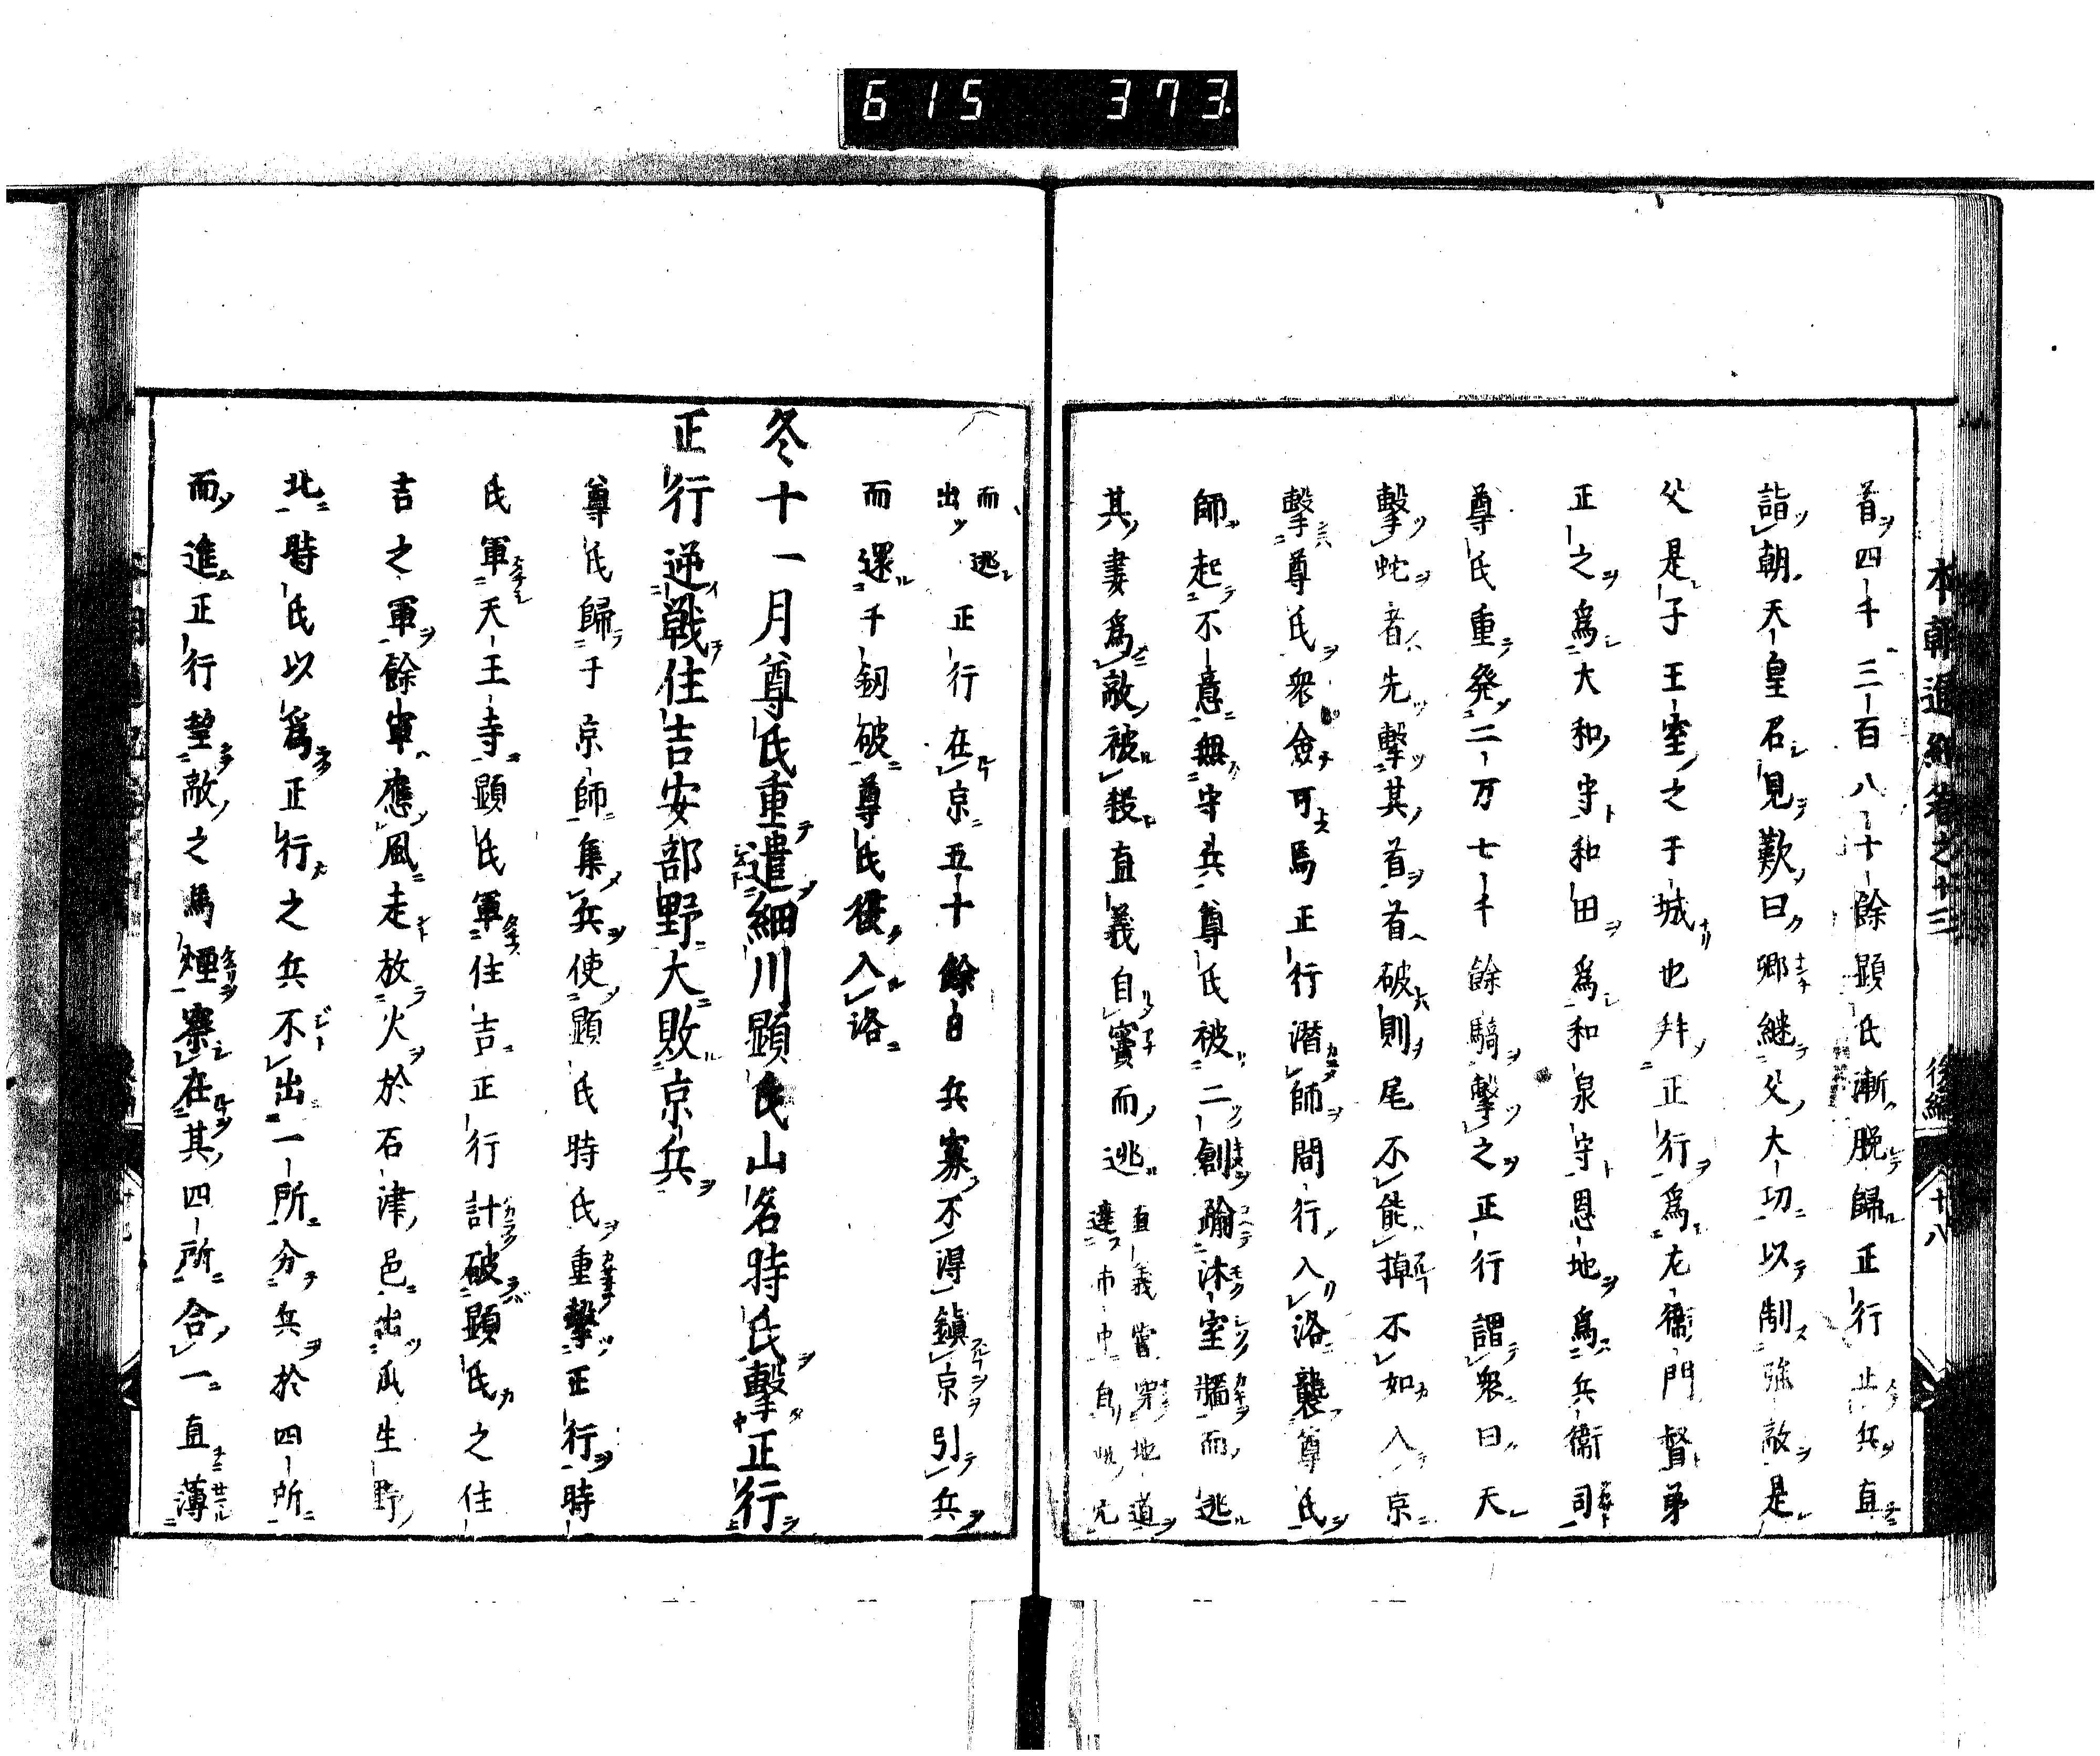 615 373
本朝通紀巻之十三 後編 十八
首四千三百八十餘顕氏漸脱歸正行止兵直
詣朝天皇召見歎曰郷継父大功以制強敵是
父是子王室之干城也并正行為左衛門督弟
正之為大和守和田為和泉守恩地為兵衛司
尊氏重発二万七千餘騎擊之正行謂衆曰天
擊蛇者先擊其首首破則尾不能掉不如入京
擊尊氏衆僉可焉正行潜師間行入洛襲尊氏
師起不意無守兵尊氏被二創踰沐室牆而逃
其妻為敵被殺直義自竇而逃
直義嘗穿地道
達市中自此穴
而逃
出
正行在京五十餘日兵寡不得鎮京引兵
而還千釼破尊氏復入洛
冬十一月尊氏重遣細川顕氏山名時氏擊正行
正行逆戦住吉安部野大敗京兵
尊氏歸于京師集兵使顕氏時氏重擊正行時
氏軍天王寺顕氏軍住吉正行計破顕氏之住
吉之軍餘軍應風走放火於石津邑出瓜生野
北時氏以為正行之兵不出一所分兵於四所
而進正行望敵之為煙察在其四所合一直薄